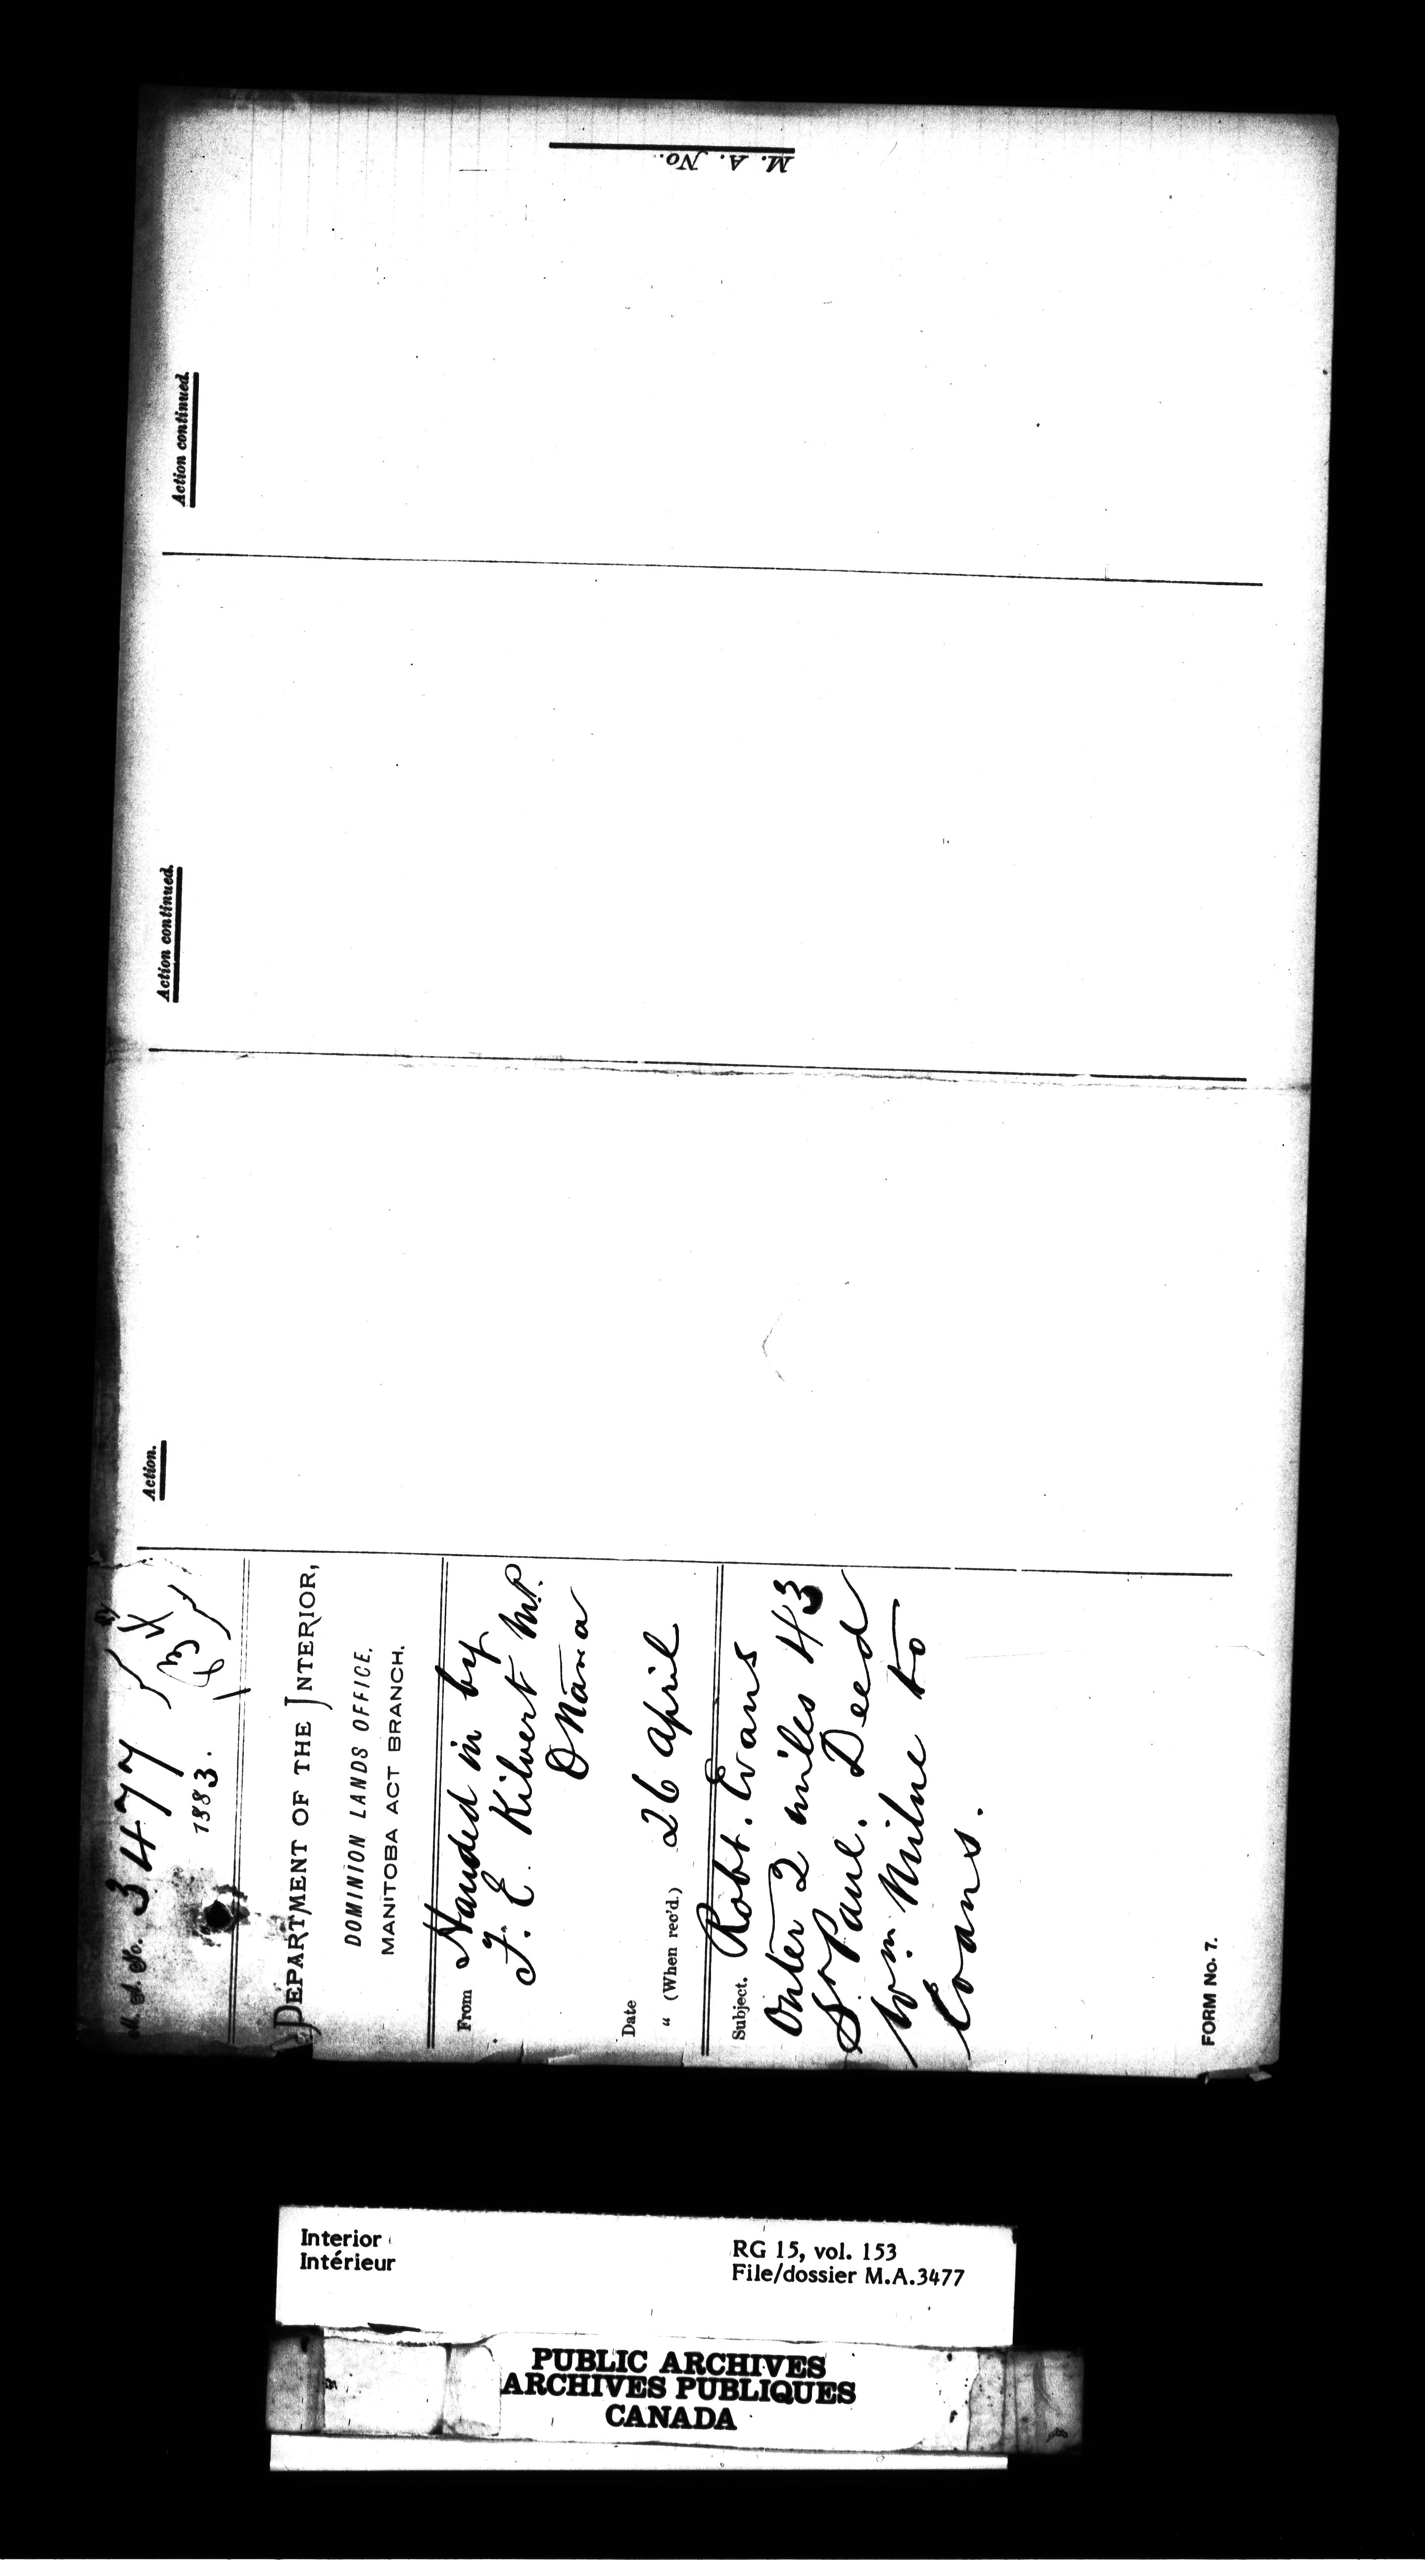 M. A. No. 3477
1883.
DEPARTMENT OF THE INTERIOR,
DOMINION LANDS OFFICE,
MANITOBA ACT BRANCH.
From Handed in by
F. E. Kilvert M.P.
Date
" (When rec'd.) 26 April
Subject. Robt. Evans
Outer 2 miles 43
St Paul. Deed
Wm. Milne to
Evans.
FORM No. 7.
Action.
Action continued.
Action continued.
M. A. No.
Interior
Intérieur
RG 15, vol. 153
File/dossier M.A.3477
PUBLIC ARCHIVES
ARCHIVES PUBLIQUES
CANADA